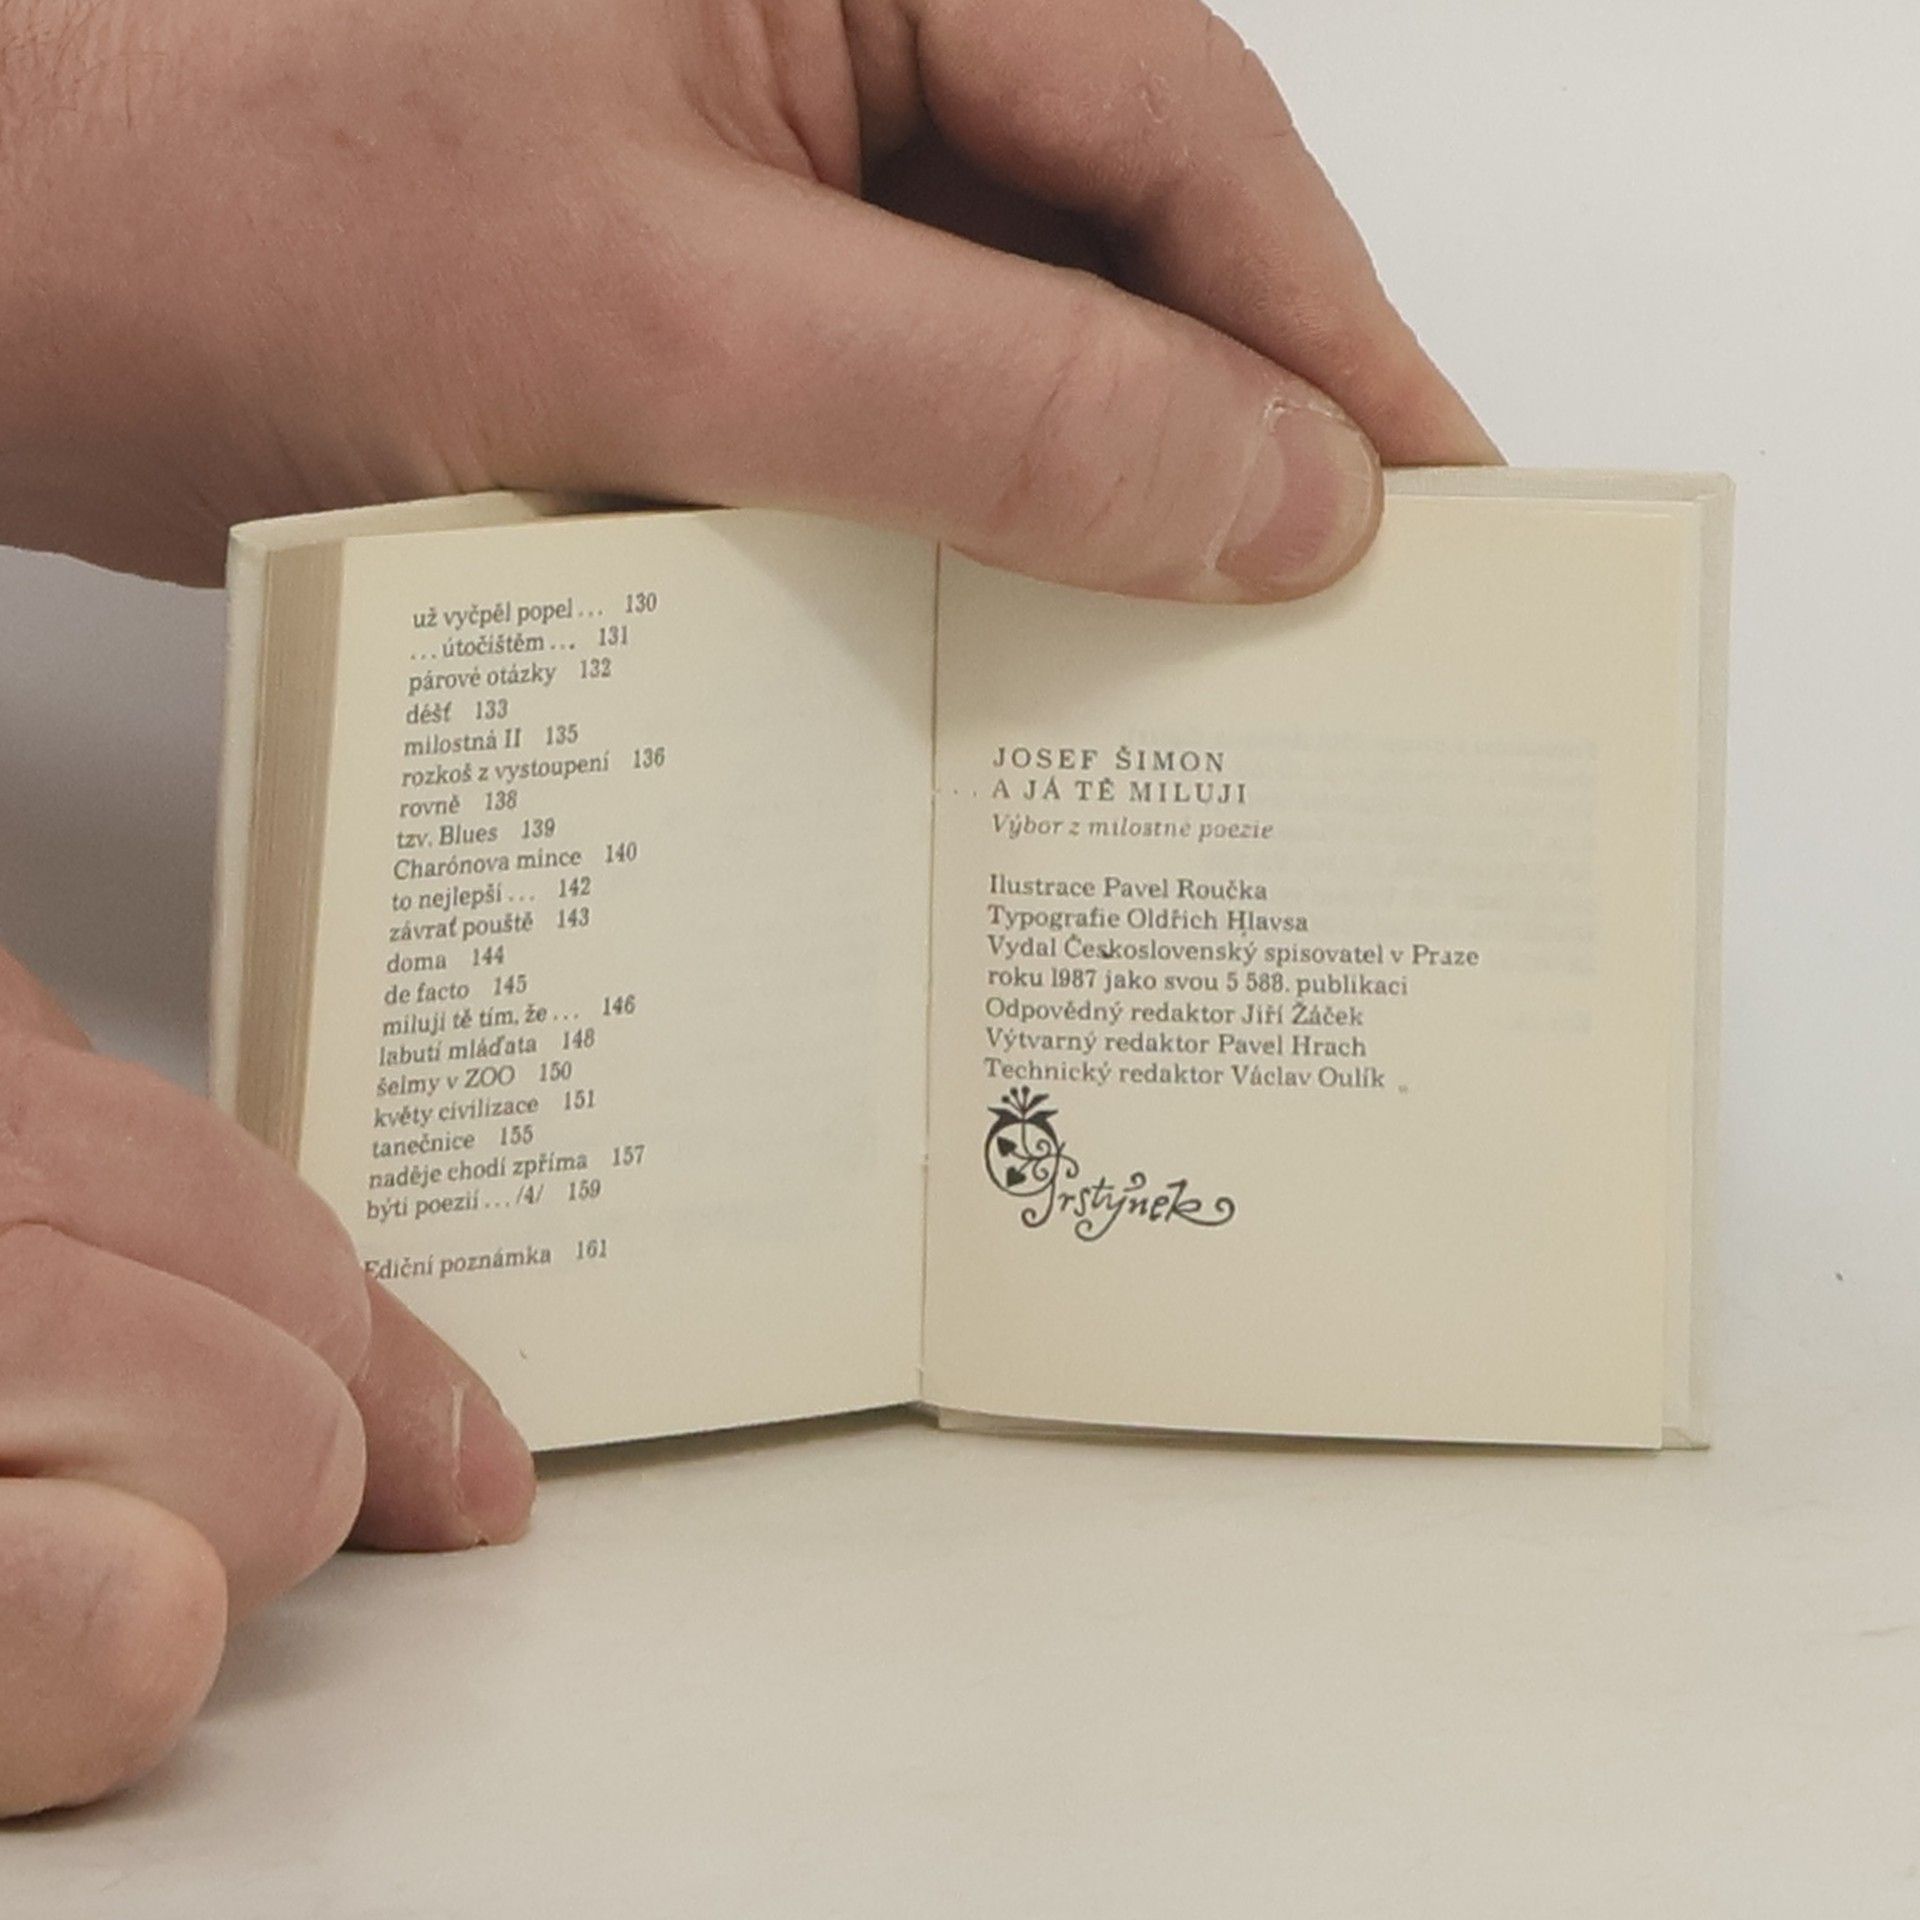 už vyčpěl popel... 130
...útočištěm... 131
párové otázky 132
déšť 133
milostná II 135
rozkoš z vystoupení 136
rovně 138
tzv. Blues 139
Charónova mince 140
to nejlepší... 142
závrať pouště 143
doma 144
de facto 145
miluji tě tím, že... 146
labutí mláďata 148
šelmy v ZOO 150
květy civilizace 151
tanečnice 155
naděje chodí zpříma 157
býti poezií.../4/ 159
Ediční poznámka 161
JOSEF ŠIMON
...A JÁ TĚ MILUJI
Výbor z milostné poezie
Ilustrace Pavel Roučka
Typografie Oldřich Hlavsa
Vydal Československý spisovatel v Praze
roku 1987 jako svou 5 588. publikaci
Odpovědný redaktor Jiří Žáček
Výtvarný redaktor Pavel Hrach
Technický redaktor Václav Oulík
Prstýnek